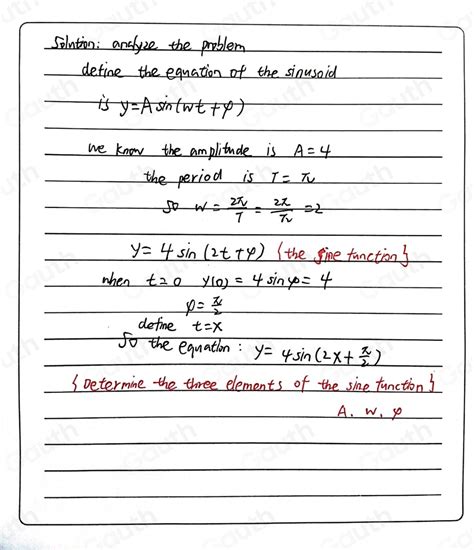 Solution: analyze the problem
define the equation of the sinusoid
is y=A sin(wt+φ)
we know the amplitude is A=4
the period is T=π
so w=2π/T=2π/π=2
y=4 sin(2t+φ) {the sine function}
when t=0 y(0)=4 sinφ=4
φ=π/2
define t=x
so the equation: y=4sin(2x+π/2)
{Determine the three elements of the sine function}
A. w. φ